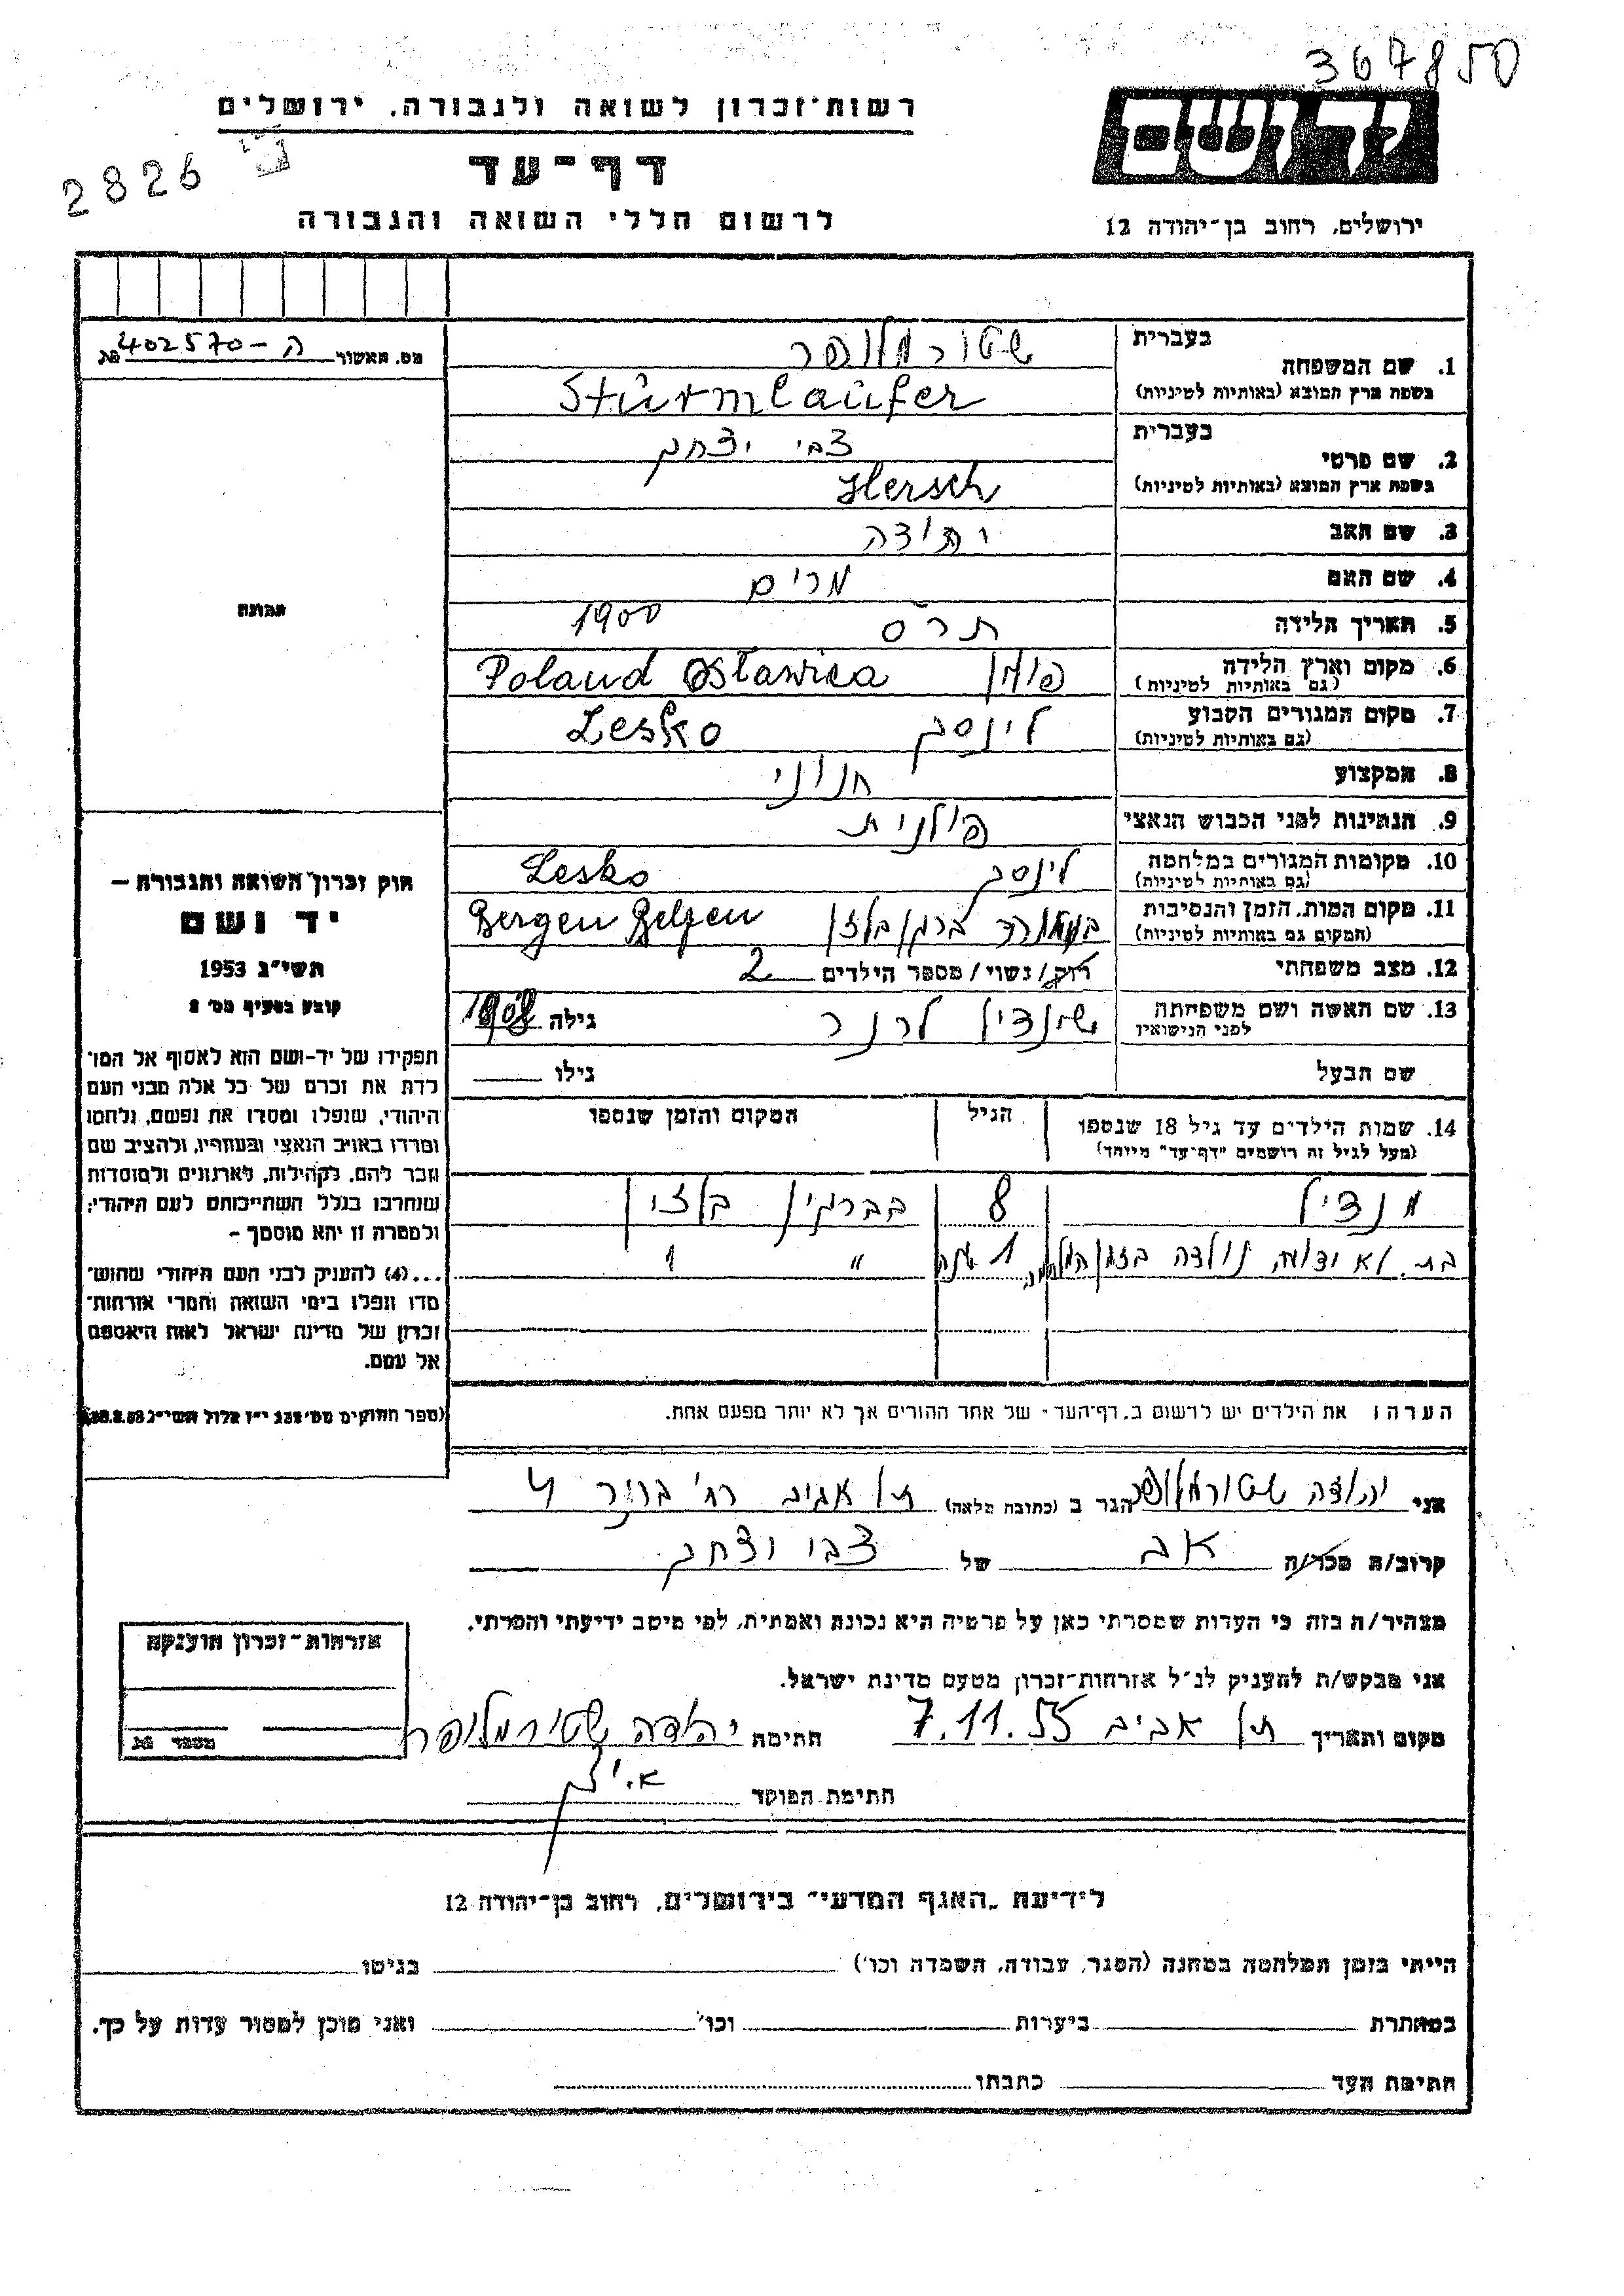 367850
רשות־זכרון לשואה ולגבורה, ירושלים
דף־עד
2826
לרשום חללי השואה והגבורה
יד ושם
ירושלים, רחוב בן־יהודה 12
מס. האשור ה-402570 מת
בעברית
1. שם המשפחה
שטורמלופר
בשפת ארץ המוצא (באותיות לטיניות)
Stürmlaüfer
בעברית
2. שם פרטי
צבי יצחק
בשפת ארץ המוצא (באותיות לטיניות)
Hersch
3. שם האב
יהודה
4. שם האם
מרים
5. תאריך הלידה
תר"ס 1900
6. מקום וארץ הלידה
(גם באותיות לטיניות)
פולין Poland Osławica
7. מקום המגורים הקבוע
(גם באותיות לטיניות)
לינסק Lesko
8. המקצוע
חנוני
9. הנתינות לפני הכבוש הנאצי
פולנית
10. מקומות המגורים במלחמה
(גם באותיות לטיניות)
לינסק Lesko
11. מקום המות, הזמן והנסיבות
(המקום גם באותיות לטיניות)
ברגן בלזן Bergen Belzen
12. מצב משפחתי
רווק/נשוי/מספר הילדים 2
13. שם האשה ושם משפחתה
לפני הנישואין
שינדיל לרנר גילה
שם הבעל גילו
14. שמות הילדים עד גיל 18 שנספו
(מעל לגיל זה רושמים "דף־עד" מיוחד)
הגיל
המקום והזמן שנספו
מנדיל 8 בברגין בלזן
בת. לא ידוע, נולדה בזמן המלחמה 1 שנה " "
הערה: את הילדים יש לרשום ב„דף־העד" של אחד ההורים אך לא יותר מפעם אחת.
תמונה
חוק זכרון השואה והגבורה –
יד ושם
תשי"ג 1953
קובע בסעיף מס' 2
תפקידו של יד-ושם הוא לאסוף אל המו־
לדת את זכרם של כל אלה מבני העם
היהודי, שנפלו ומסרו את נפשם, נלחמו
ומרדו באויב הנאצי ובעוזריו, ולהציב שם
וזכר להם, לקהילות, לארגונים ולמוסדות
שנחרבו בגלל השתייכותם לעם היהודי;
ולמטרה זו יהא מוסמך –
...(4) להעניק לבני העם היהודי שהוש־
מדו ונפלו בימי השואה והמרי אזרחות־
זכרון של מדינת ישראל לאות היאספם
אל עמם.
(ספר החוקים מס' 132 י"ז אלול תשי"ג 28.8.53)
אני יהודה שטורמלופר הגר ב (כתובת מלאה) תל אביב רח'
קרוב/ה מכר/ה אב של צבי יצחק
מצהיר/ה בזה כי העדות שמסרתי כאן על פרטיה היא נכונה ואמתית, לפי מיטב ידיעתי והכרתי.
אני מבקש/ת להעניק לנ"ל אזרחות־זכרון מטעם מדינת ישראל.
מקום ותאריך תל אביב 7.11.55 חתימה יהודה שטורמלופר
חתימת הפוקד
אזרחות־זכרון הוענקה
מספר מת
לידיעת „האגף המדעי" בירושלים, רחוב בן־יהודה 12
הייתי בזמן המלחמה במחנה (הסגר, עבודה, השמדה וכו') בגיטו
במחתרת ביערות וכו' ואני מוכן למסור עדות על כך.
חתימת העד כתבתו